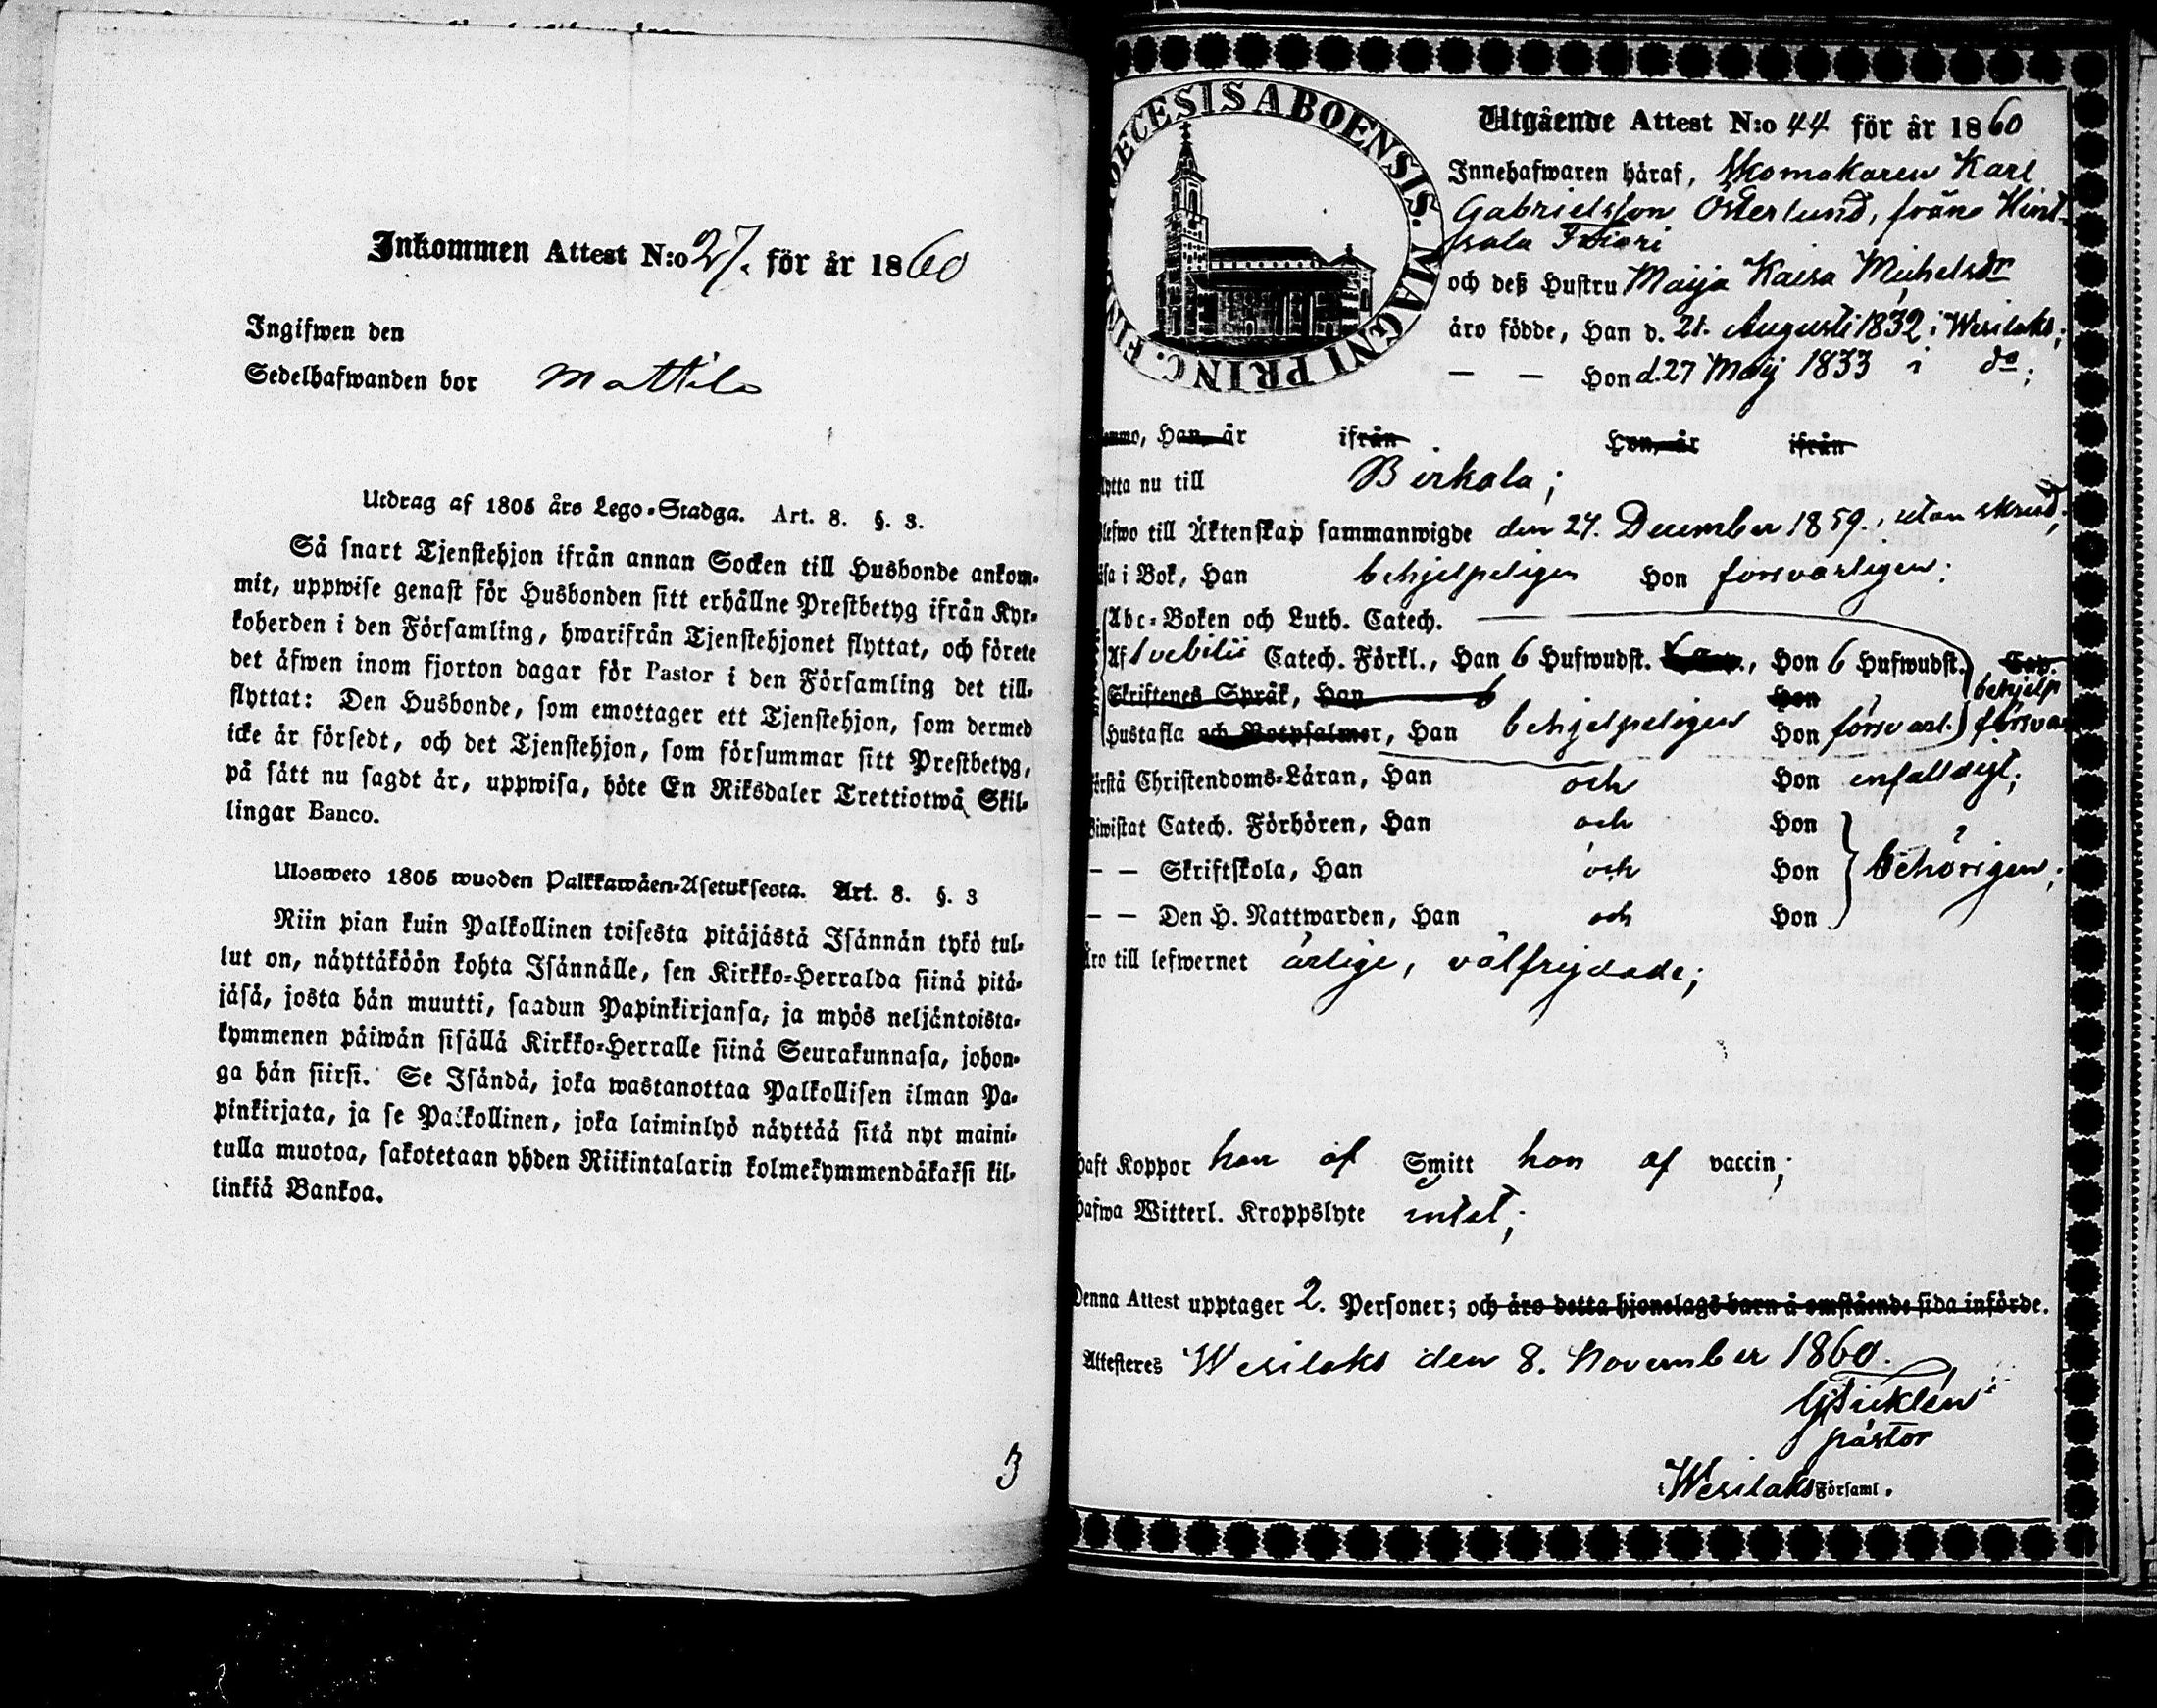 Inkommen Attest N:o 27. för år 1860
Ingifwen den
Sedelhafwanden bor Mattila
Utdrag af 1805 års Lego-Stadga. Art. 8. §. 3.
Så snart Tjenstehjon ifrån annan Socken till Husbonde ankom-
mit, uppwise genast för Husbonden sitt erhållne Prestbetyg ifrån Kyr-
koherden i den Församling, hwarifrån Tjenstehjonet flyttat, och förete
det äfwen inom fjorton dagar för Pastor i den Församling det till-
flyttat: Den Husbonde, som emottager ett Tjenstehjon, som dermed
icke är försedt, och det Tjenstehjon, som försummar sitt Prestbetyg,
på sätt nu sagdt är, uppwisa, böte En Riksdaler Trettiotwå Skil-
lingar Banco.
Ulosweto 1805 wuoden Palkkawäen-Asetuksesta. Art. 8. §. 3
Niin pian kuin Palkollinen toisesta pitäjästä Isännän tykö tul-
lut on, näyttäköön kohta Isännälle, sen Kirkko-Herralda siinä pitä-
jäsä, josta hän muutti, saadun Papinkirjansa, ja myös neljäntoista-
kymmenen päiwän sisällä Kirkko-Herralle siinä Seurakunnasa, johon-
ga hän siirsi. Se Isändä, joka wastanottaa Palkollisen ilman Pa-
pinkirjata, ja se Palkollinen, joka laiminlyö näyttää sitä nyt maini-
tulla muotoa, sakotetaan yhden Riikintalarin kolmekymmendäkaksi kil-
linkiä Bankoa.
3
DECESIS ABOENSIS. MAGNI PRINC. FIN
Utgående Attest N:o 44 för år 1860
Innehafwaren häraf, Skomakaren Karl
Gabrielsson Österlund, från Hint-
sala
och deß Hustru Maija Kaisa Michelsdr
äro födde, Han d. 21. Augusti 1832 i Wesilaks;
— — Hon d. 27 Maij 1833 i do;
ommo, Han, är ifrån Hon, är ifrån
lytta nu till Birkala;
lefwo till Äktenskap sammanwigde den 27. December 1859., utan skrud;
äsa i Bok, Han behjelpeligen Hon försvarligen;
Abc-Boken och Luth. Catech.
Af Svebilii Catech. Förkl., Han 6 Hufwudst. Cap., Hon 6 Hufwudst. Cap.
behjelp
Skriftenes Språk, Han Hon
Hustafla och Botpsalmer, Han behjelpeligen Hon försvarl. försvar
örstå Christendoms-Läran, Han och Hon enfalldigt;
iwistat Catech. Förhören, Han och Hon
— — Skriftskola, Han och Hon behörigen;
— — Den H. Nattwarden, Han och Hon
äro till lefwernet ärlige, välfrejdade;
haft Koppor han af Smitt hon af vaccin;
hafwa Witterl. Kroppslyte intet;
Denna Attest upptager 2. Personer; och äro detta hjonelags barn å omstående sida införde.
Attesteres Wesilaks den 8. November 1860.
pastor
i Wesilaks Församl.